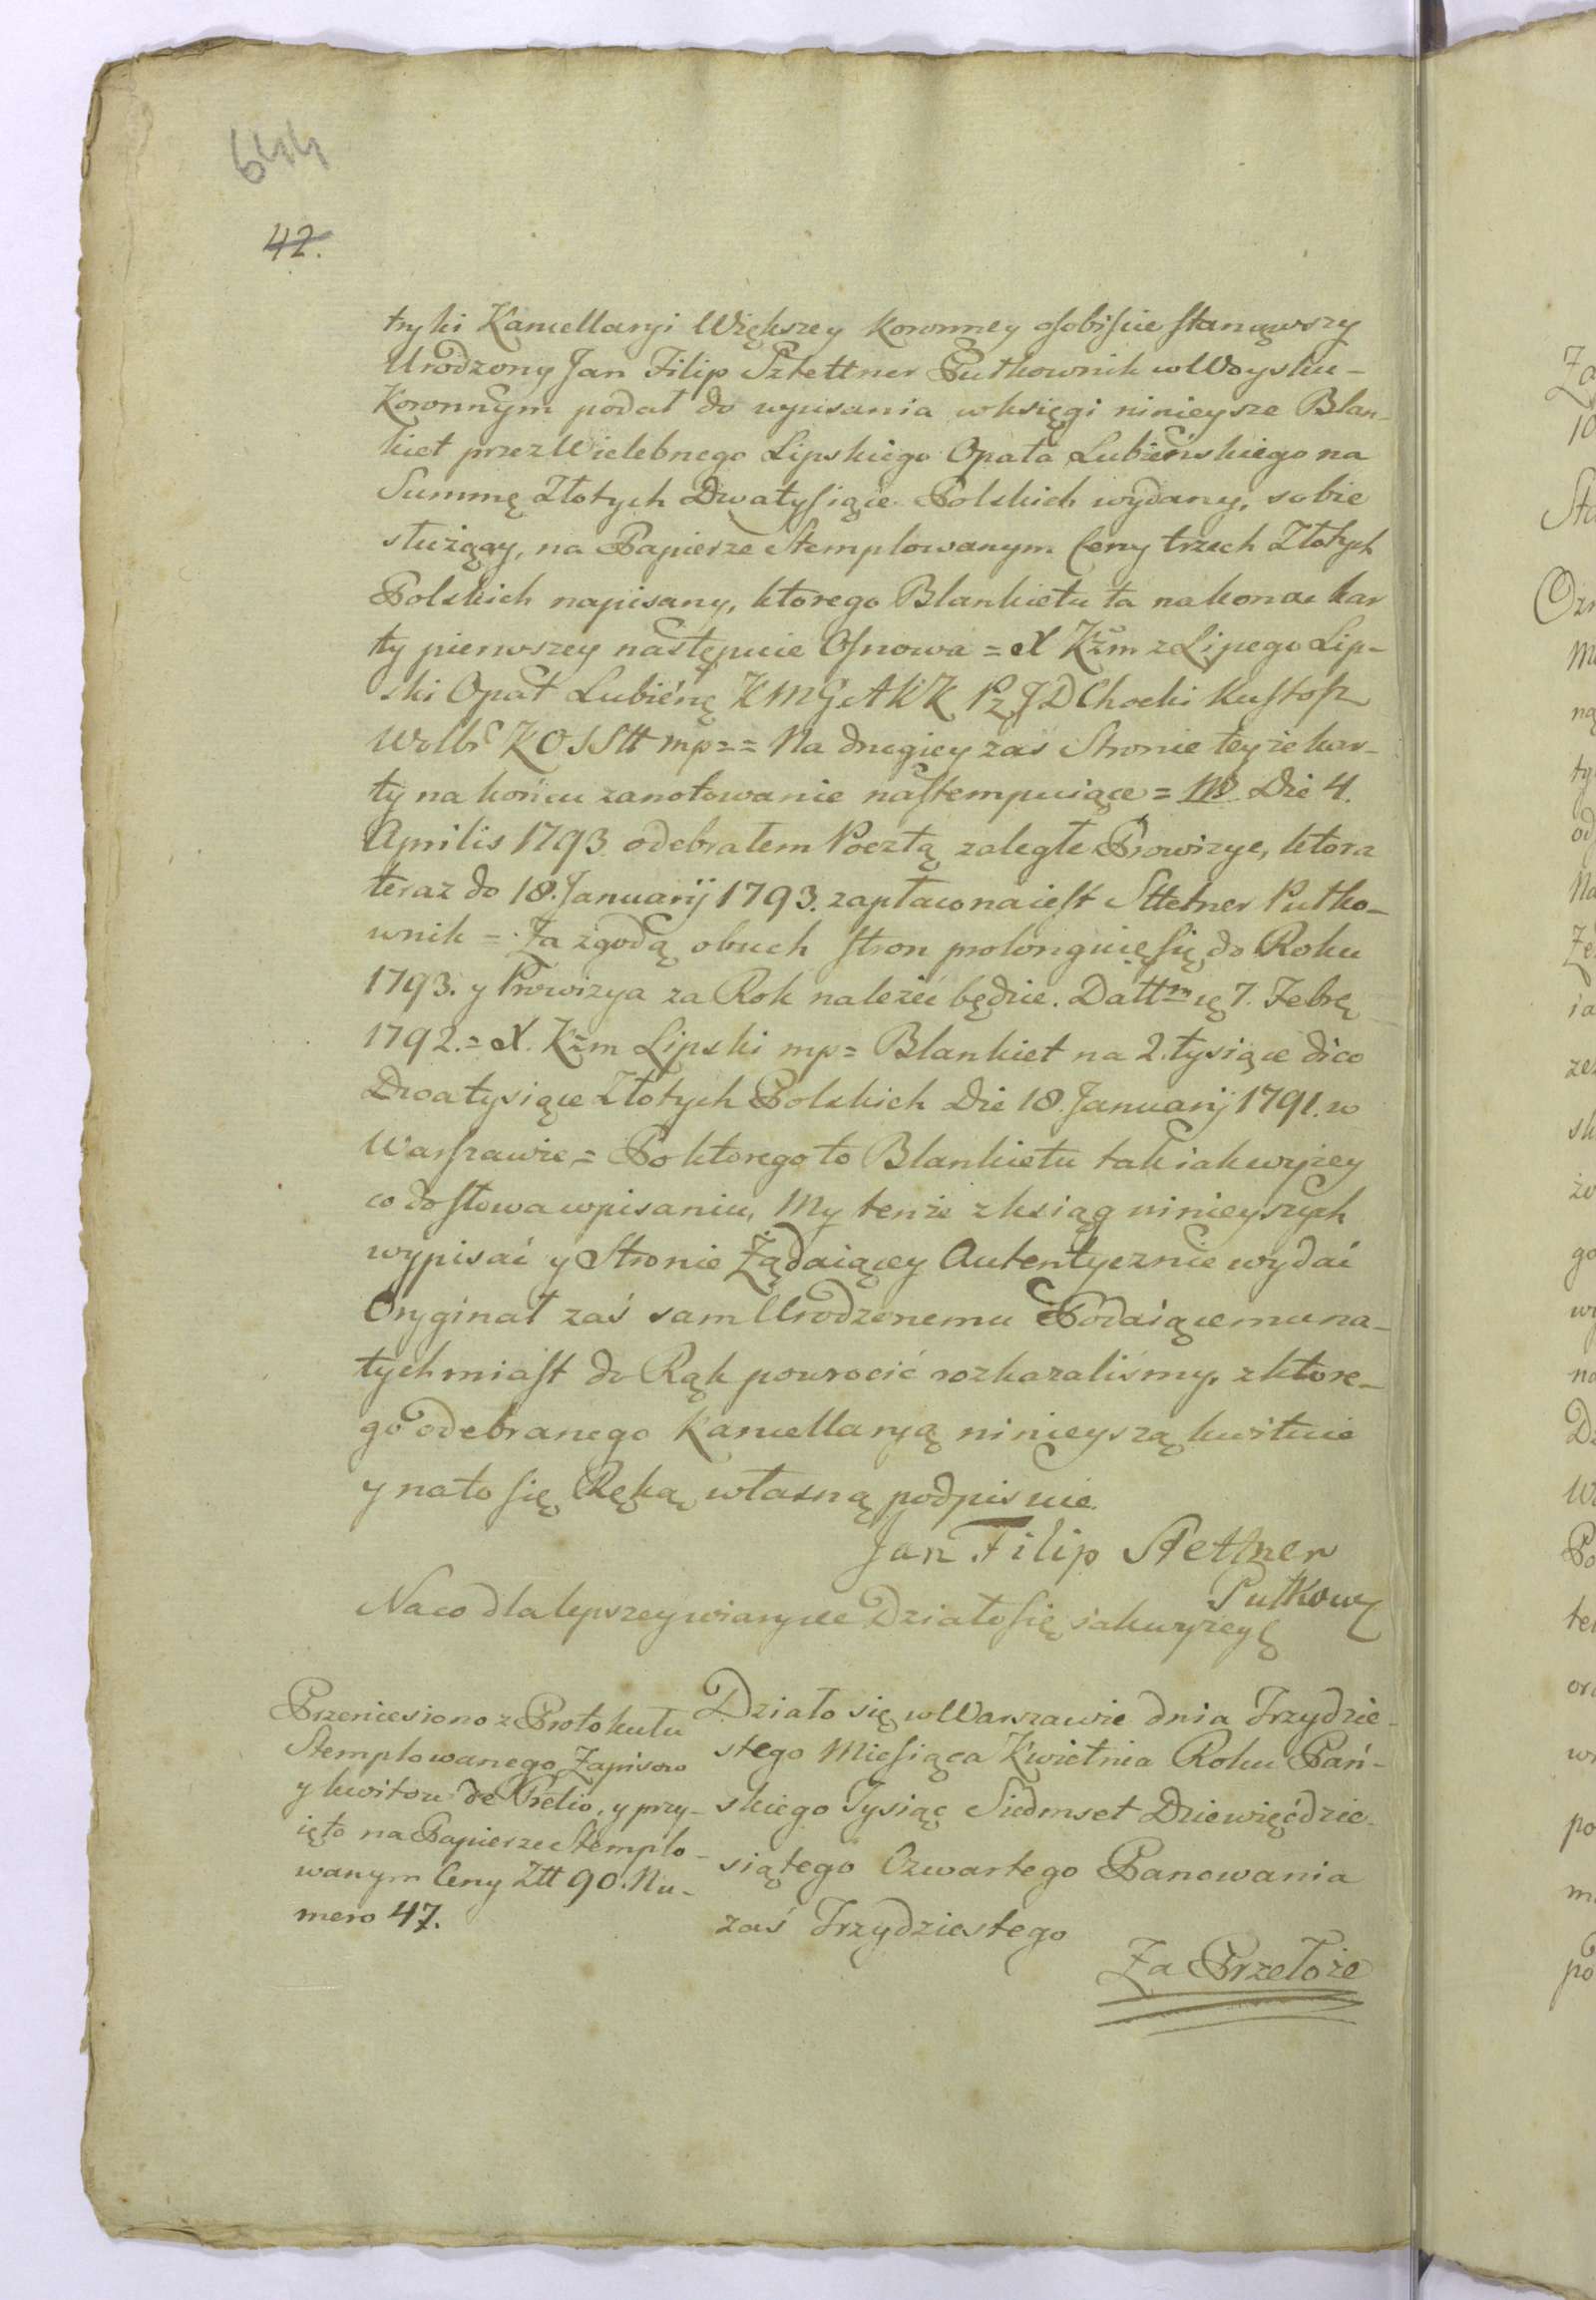 644
42.
tryki Kancellaryi Większey Koronney osobiście stanąwszy
Urodzony Jan Filip Sztettner Pułkownik w Woysku-
Koronnym podał do wpisania w księgi ninieysze Blan-
kiet przez Wielebnego Lipskiego Opata Lubieńskiego na
Summę Złotych Dwatysiące Polskich wydany, sobie
służący, na Papierze Stemplowanym Ceny trzech Złotych
Polskich napisany, ktorego Blankietu ta na koncu kar
ty pierwszey następuie Osnowa = X Kźm z Lipego Lip-
ski Opat Lubiénę KMGAKK PzJD Chocki Kustosz
Wolbr KOSStt mp = = Na drugiey zaś Stronie teyże kar-
ty na końcu zanotowanie nastempuiące = NB Die 4.
Aprilis 1793 odebrałem Pocztą zaległe Prowizye, ktora
teraz do 18. Januarij 1793. zapłacona iest Sttetner Pułko-
wnik = Za zgodą obuch stron prolonguię się do Roku
1793. y Prowizya za Rok należeć będzie. Dattm ę 7. Febrę
1792. = X. Kźm Lipski mp = Blankiet na 2. tysiące dico
Dwatysiące Złotych Polskich Die 18. Januarij 1791. w
Warszawie = Po ktorego to Blankietu tak iak wyżey
co do słowa wpisaniu, My tenże z ksiąg ninieyszych
wypisać y Stronie Żądaiącey Autentycznie wydać
Oryginał zaś sam Urodzonemu Podaiącemu na-
tychmiast do Rąk powrocić rozkazaliśmy, z ktore-
go odebranego Kancellaryą ninieyszą kwituie
y na to się Ręką własną podpisuie.
Jan Filip Stettner
Pułkow
Na co dla lepszey wiary etc Działo się iak wyżey
Przeniesiono z Protokułu
Stemplowanego Zapisow
y kwitow de Prelio, y przy-
ięto na Papierze Stemplo-
wanym Ceny Ztt 90. Nu-
mero 47.
Działo się w Warszawie dnia Trzydzie-
stego Miesiąca Kwietnia Roku Pań-
skiego Tysiąc Siedmset Dziewięćdzie-
siątego Czwartego Panowania
zaś Trzydziestego
Za Przełoże